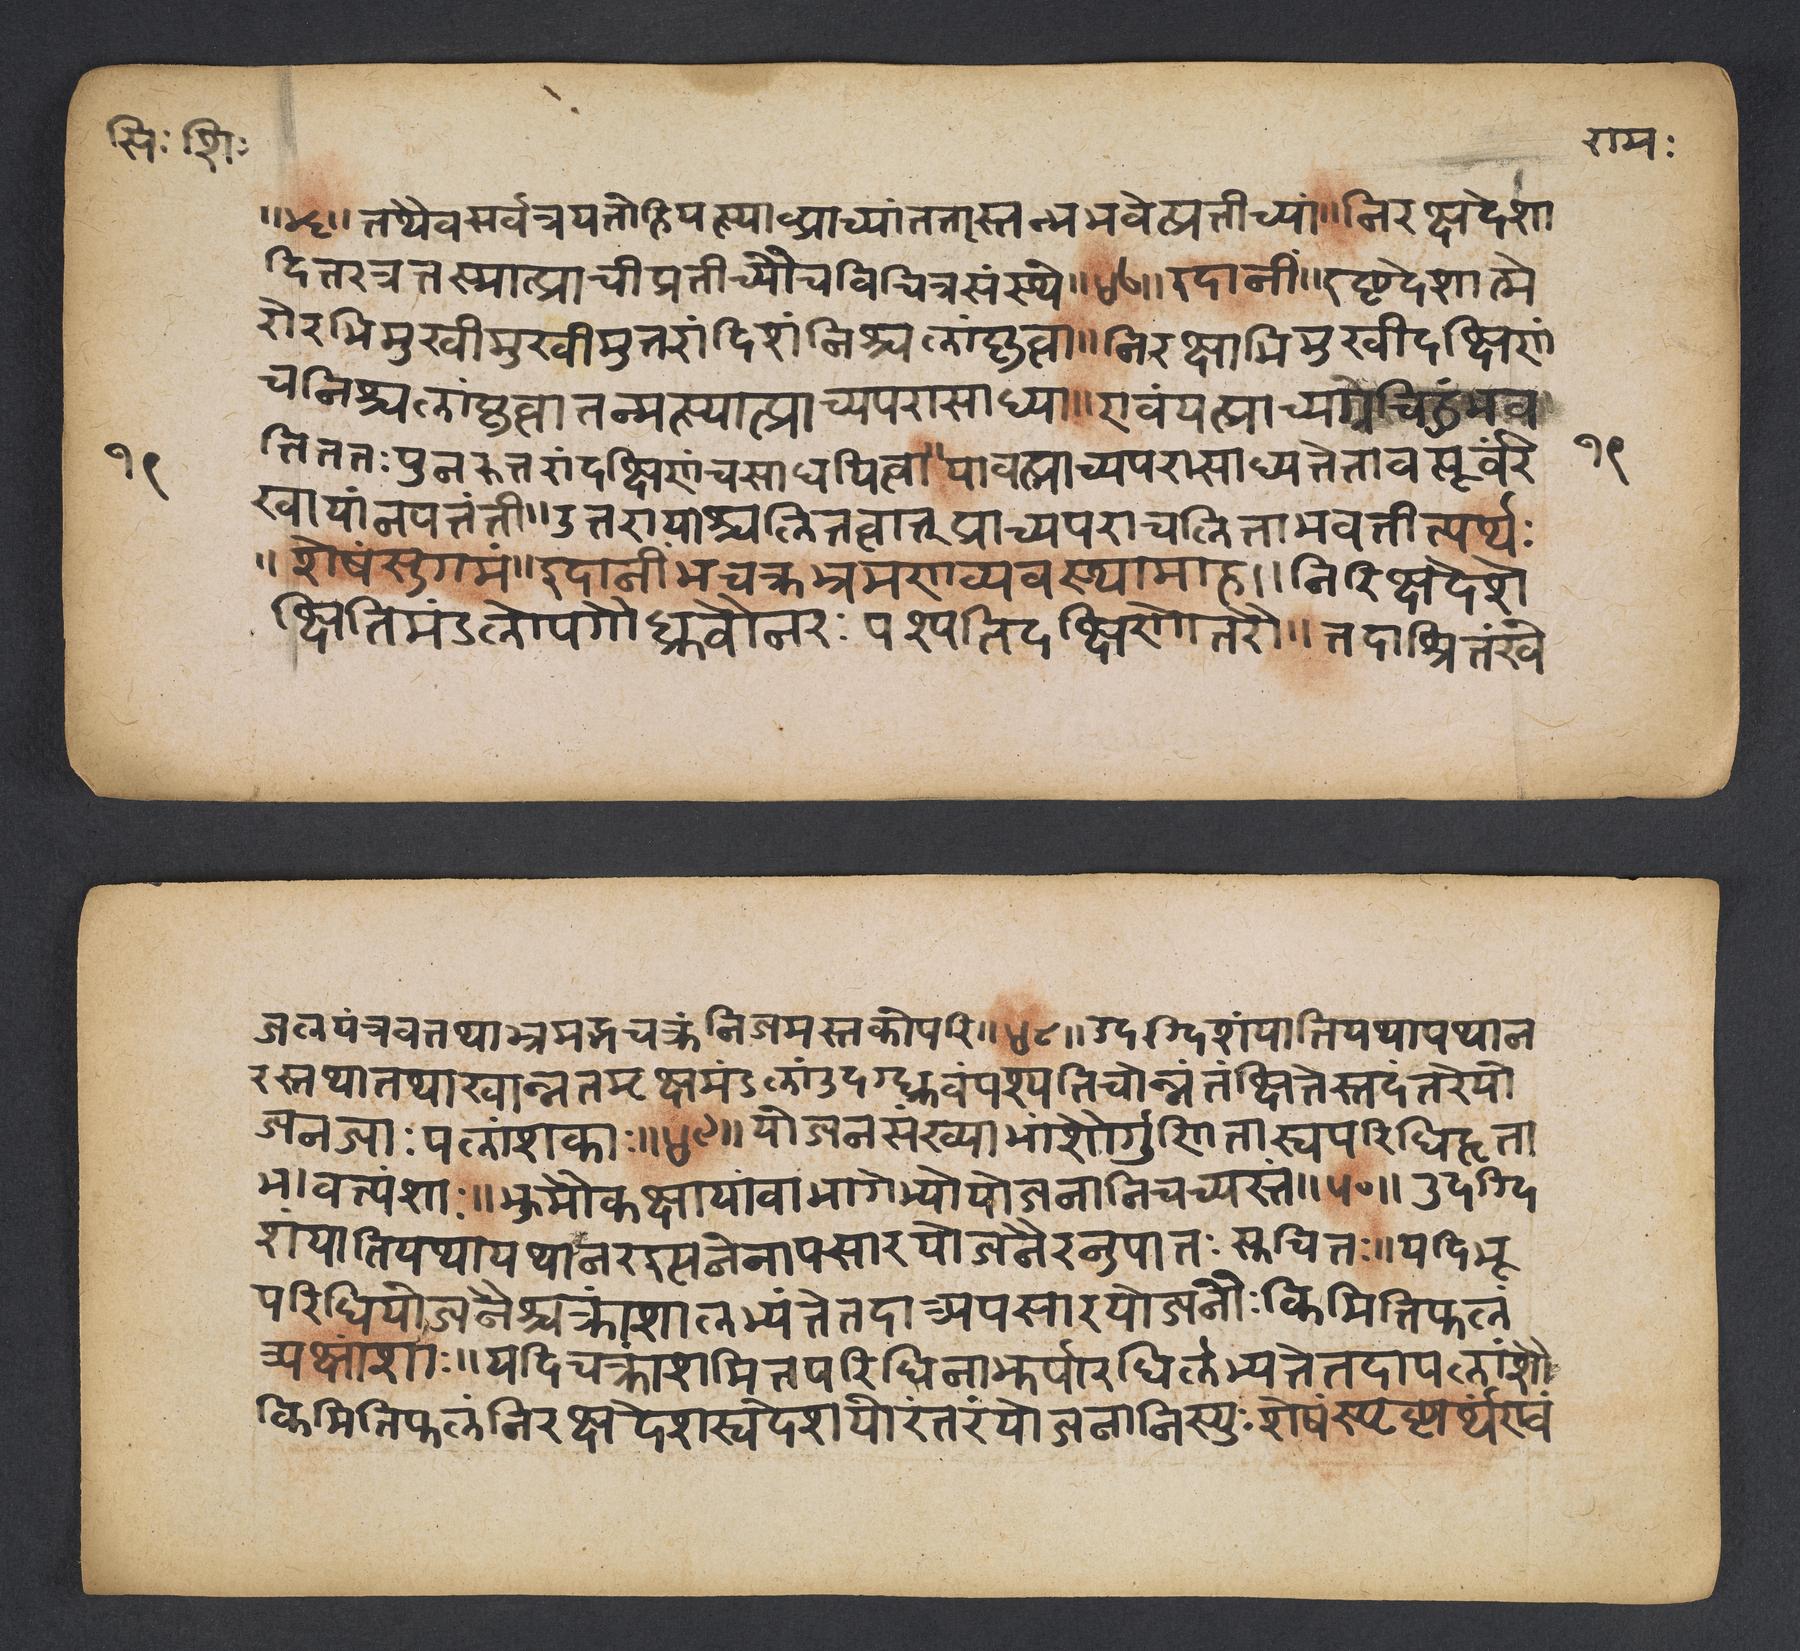 सि: शि:
राम:
॥४६॥ तथैवसर्वत्रयतोहिपत्स्याप्राच्यांततास्तन्मभवेत्प्रतीच्यां॥निरक्षदेशा
दितरत्रतस्मात्प्राचीप्रतीच्यौचविचित्रसंस्थे॥४७॥इदानीं॥इष्टदेशात्मे
रोरभिमुखीमुखीमुत्तरांदिशंनिश्चलांकृत्वा॥निरक्षाभिमुखीदक्षिणां
चनिश्चलांकृत्वातन्मत्स्यात्प्राच्यपरासाध्या॥एवंयत्प्राच्यग्रेचिह्नंभव
१९
तिततःपुनरुत्तरांदक्षिणांचसाधयित्वा॥यावत्प्राच्यपरासाध्यतेतावत्पूर्वरे
१९
खायांनपतंती॥उत्तरायाश्चलितत्वात्प्राच्यपराचलिताभवतीत्यर्थः
॥शेषंसुगमं॥इदानींभचक्रभ्रमणव्यवस्थामाह॥निरिक्षदेशे
क्षितिमंडलोपगौध्रुवौनरःपश्यतिदक्षिणोत्तरौ॥तदाश्रितंखे
जलयंत्रवत्तथाभ्रमद्भचक्रंनिजमस्तकोपरि॥४८॥उदग्दिशंयातियथायथान
रस्तथातथाखान्नतमृक्षमंडलांउदग्ध्रुवंपश्यतिचोन्नंतंक्षितेस्तदंतरेयो
जनजाःपलांशकाः॥४९॥योजनसंख्याभांशैर्गुणितास्वपरिधिहृता
भावत्यंशाः॥भूमौकक्षायांवाभागेभ्योयोजनानिचव्यस्तं॥५०॥उदग्दि
शंयातियथायथानरइत्सनेनापसारयोजनैरनुपातःसूचितः॥यदिभू
परिधियोजनैश्चक्रांशालभ्यंतेतदाअपसारयोजनौःकिमितिफलं
अक्षांशाः॥यदिचक्रांशमितपरिधिनाभूर्पारधिर्लभ्यतेतदापलांशै
किमितिफलंनिरक्षदेशस्वदेशयोरंतरंयोजनानिस्युःशेषंस्पष्टार्थंएवं